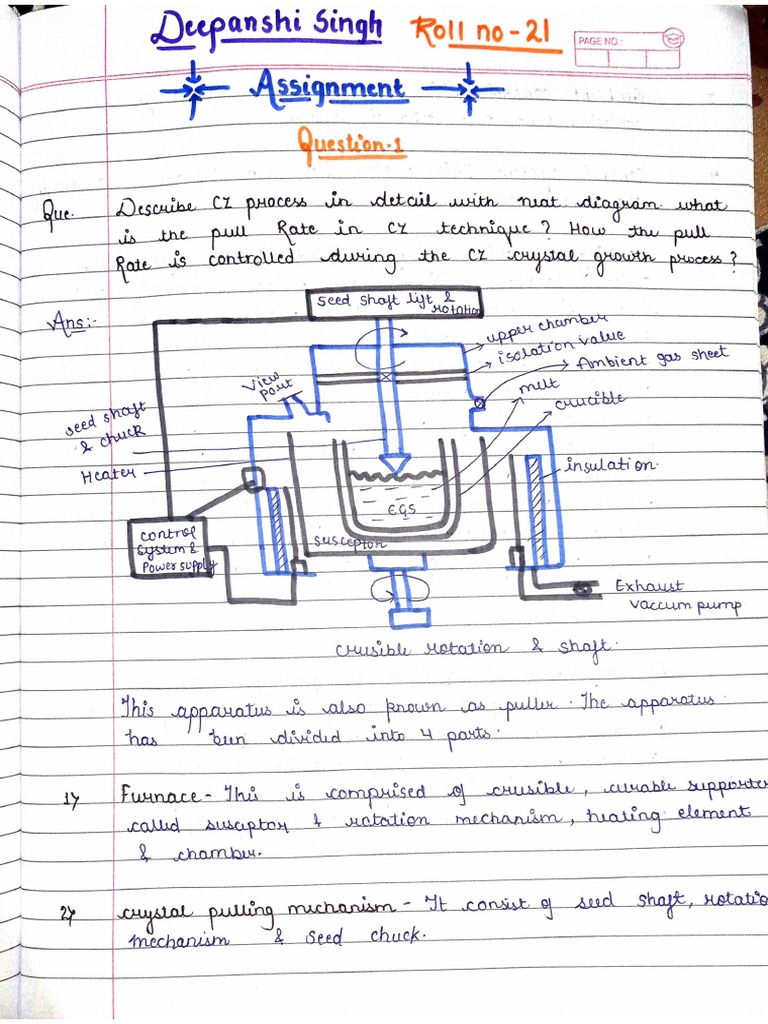 Deepanshi Singh Roll no - 21
PAGE NO.:
Assignment
Question-1
Que. Describe CZ process in detail with neat diagram. what
is the pull Rate in CZ technique? How the pull
Rate is controlled during the CZ crystal growth process?
Ans:-
seed shaft lift &
rotation
upper chamber
isolation value
Ambient gas sheet
melt
crucible
View
Pout
seed shaft
& chuck
Heater
insulation.
EGS
susceptor
control
System &
Power supply
Exhaust
vaccum pump
crusible rotation & shaft.
This apparatus is also known as puller. The apparatus
has been divided into 4 parts.
1) Furnace - This is comprised of crusible, curable supporter
called susceptor & rotation mechanism, heating element
& chamber.
2) crystal pulling mechanism - It consist of seed shaft, rotatio
mechanism & seed chuck.